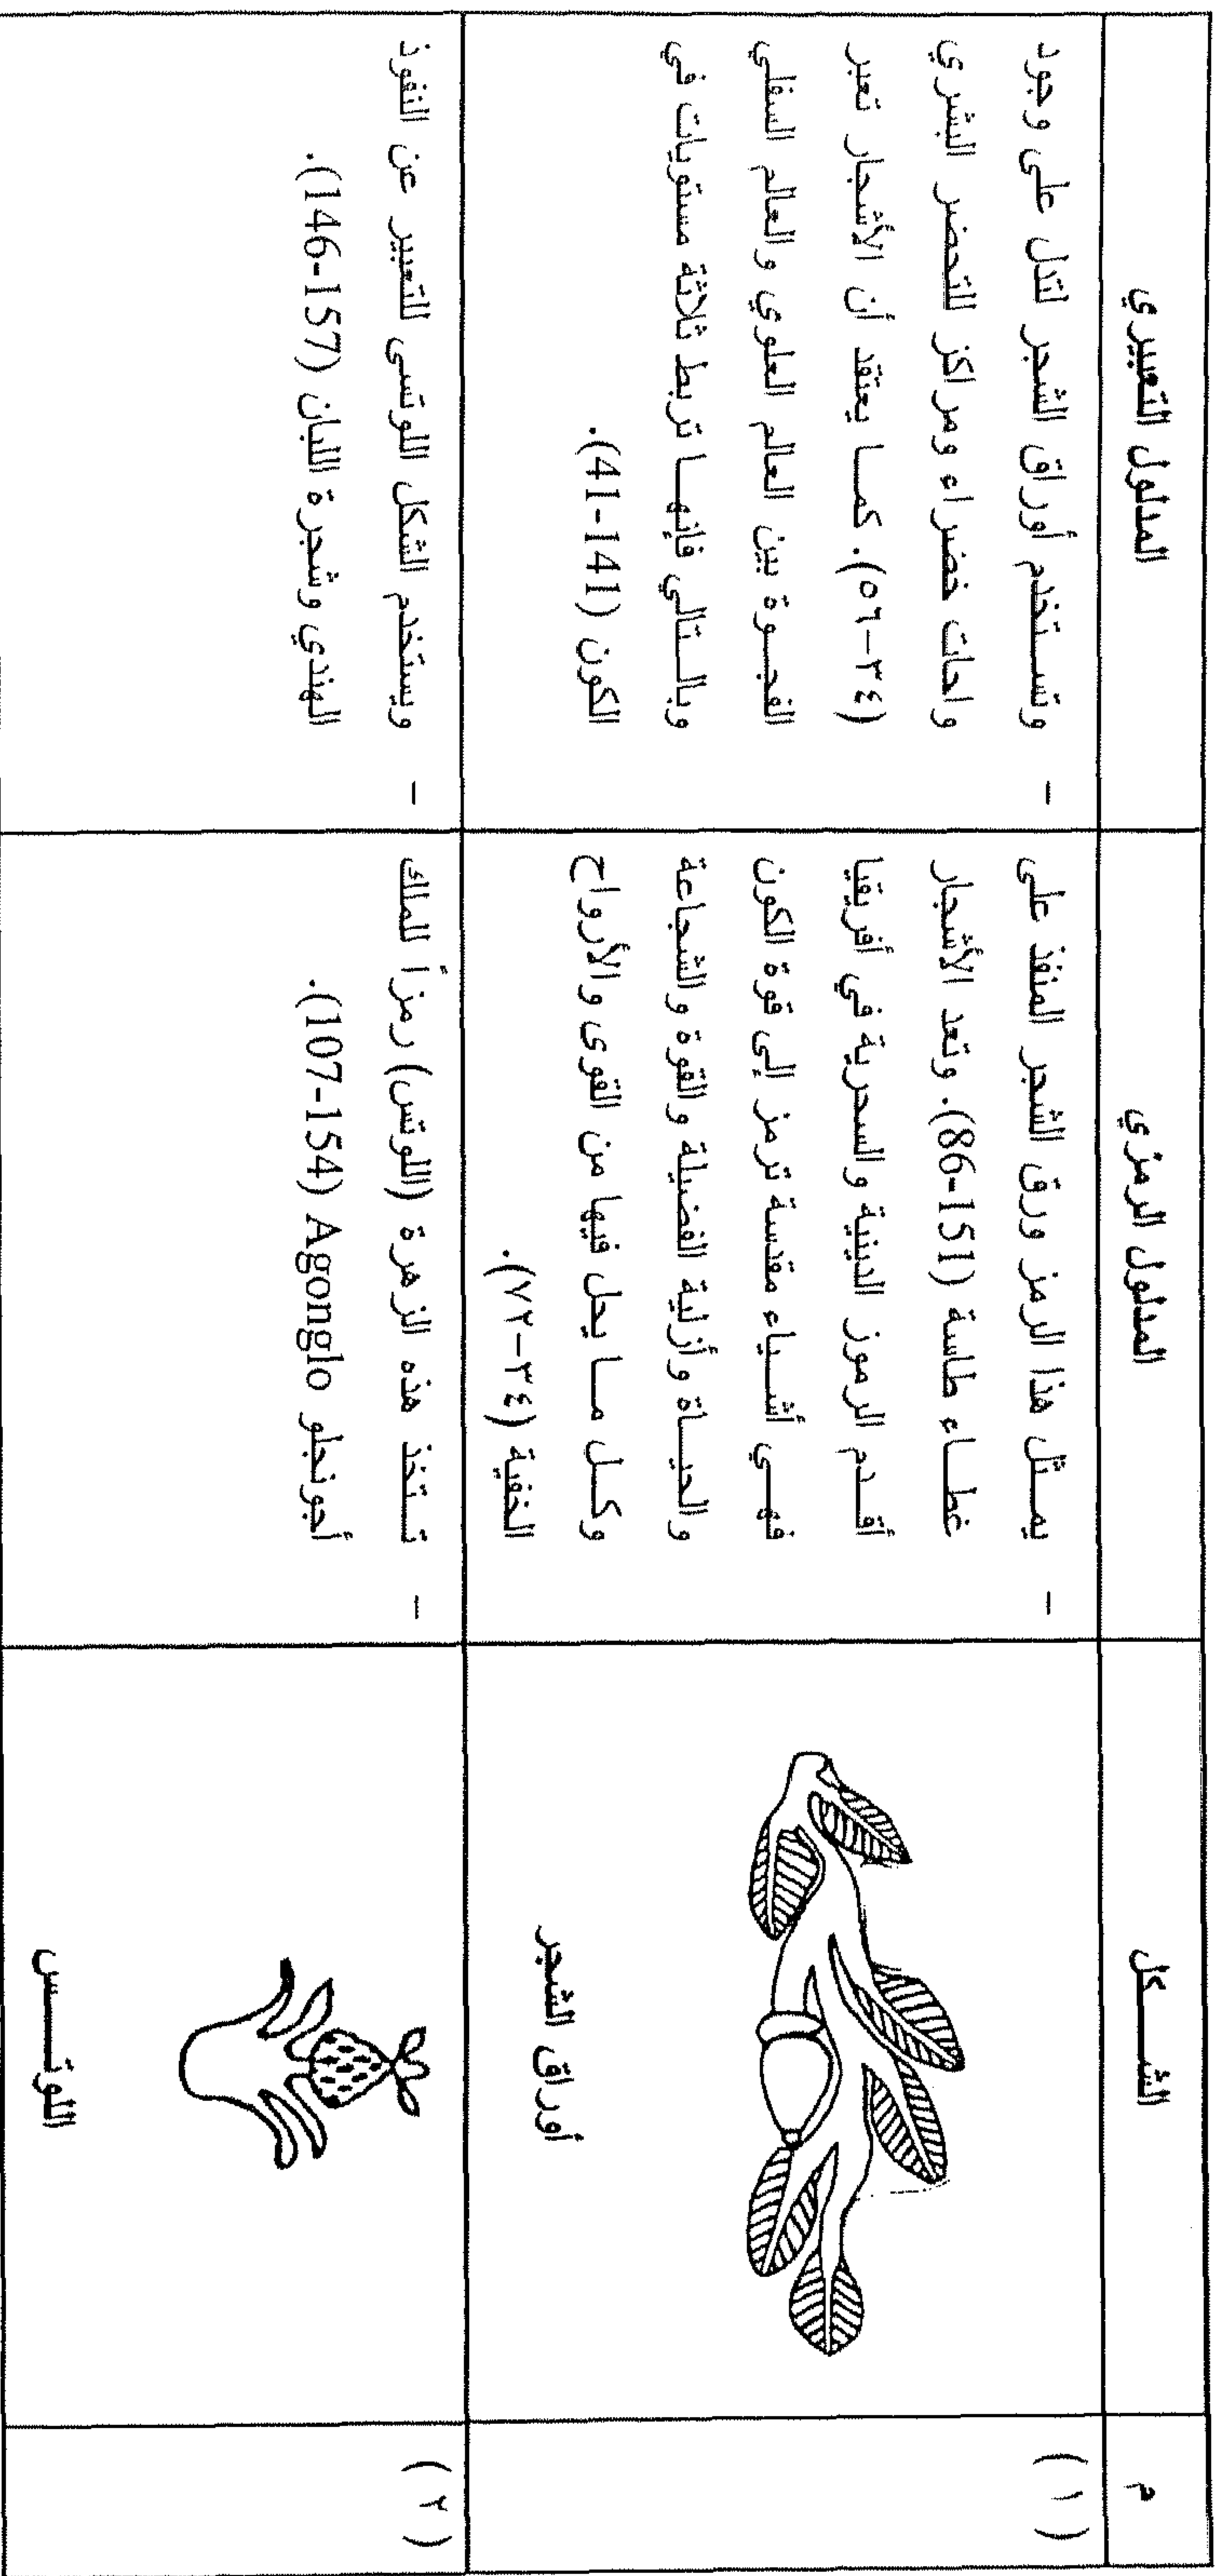 م
الشـــكل
المدلول الرمزي
المدلول التعبيري
(١)
أوراق الشجر
- يمـــثل هذا الرمز ورق الشجر المنفذ على
غطـــاء طاسة (86-151). وتعد الأشجار
أقـــدم الرموز الدينية والسحرية في أفريقيا
فهـــي أشـــياء مقدسة ترمز إلى قوة الكون
والحيـــاة وأزلية الفضيلة والقوة والشجاعة
وكـــل مـــا يحل فيها من القوى والأرواح
الخفية (٣٤-٧٢).
- وتســـتخدم أوراق الشجر لتدل على وجود
واحات خضراء ومراكز للتحضر البشري
(٣٤-٥٦). كمـــا يعتقد أن الأشجار تعبر
الفجـــوة بين العالم العلوي والعالم السفلي
وبالـــتالي فإنهـــا تربط ثلاثة مستويات في
الكون (41-141).
(٢)
اللوتـــس
- تـــتخذ هذه الزهرة (اللوتس) رمزاً للملك
أجونجلو Agonglo (107-154).
- ويستخدم الشكل اللوتسى للتعبير عن النفوذ
الهندي وشجرة اللبان (146-157).